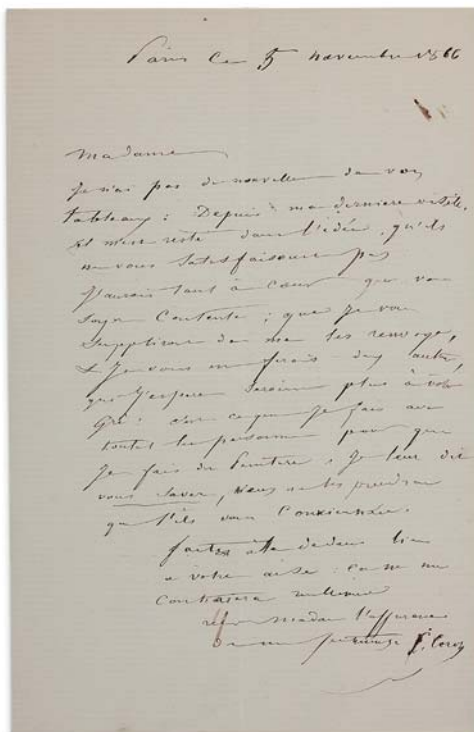 Paris ce 5 novembre 1866
Madame
Je n'ai pas de nouvelle de vos
tableaux : Depuis ma derniere visite,
il m'est resté dans l'idée, qu'ils
ne vous satisfaisoient pas
J'aurais tant à coeur que vous
soyez contente ; que je vous
supplierai de me les renvoyer,
& Je vous en ferais des autres,
que j'espere seroient plus à votre
gré : c'est ce que je fais avec
toutes les personnes pour qui
Je fais de peinture ; Je leur dis
vous savez, vous ne les prendrez
que s'ils vous conviennent.
faites là dedans bien
à votre aise : ça ne me
contrariera nullement
Madame l'assurance
de mes C. Corot